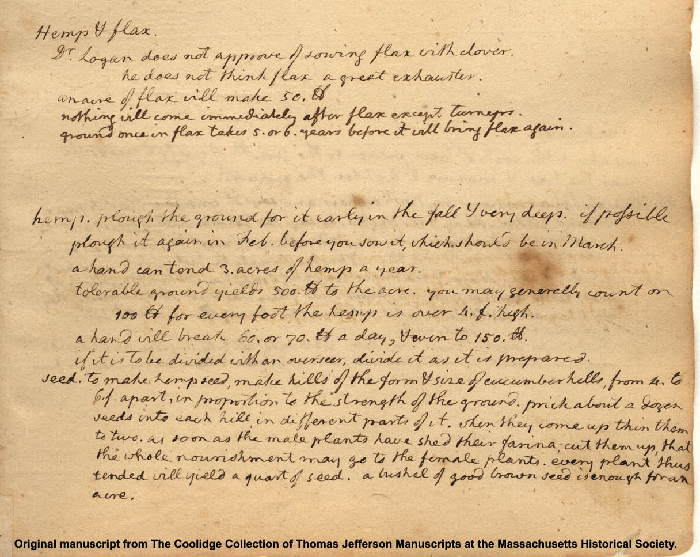 Hemp & flax.
Dr. Logan does not approve of sowing flax with clover.
he does not think flax a great exhauster.
an acre of flax will make 50. ℔
nothing will come immediately after flax except turneps.
ground once in flax takes 5. or 6. years before it will bring flax again.
hemp. plough the ground for it early in the fall & very deep. if possible
plough it again in Feb. before you sow it, which should be in March.
a hand can tend 3. acres of hemp a year.
tolerable ground yields 500. ℔ to the acre. you may generally count on
100 ℔ for every foot the hemp is over 4. f. high.
a hand will break 60. or 70. ℔ a day, & even to 150. ℔.
if it is to be divided with an overseer, divide it as it is prepared.
seed. to make hempseed, make hills of the form & size of cucumber hills, from 4. to
6 f. apart, in proportion to the strength of the ground. prick about a dozen
seeds into each hill in different parts of it. when they come up thin them
to two. as soon as the male plants have shed their farina, cut them up, that
the whole nourishment may go to the female plants. every plant thus
tended will yield a quart of seed. a bushel of good brown seed is enough for an
acre.
Original manuscript from The Coolidge Collection of Thomas Jefferson Manuscripts at the Massachusetts Historical Society.